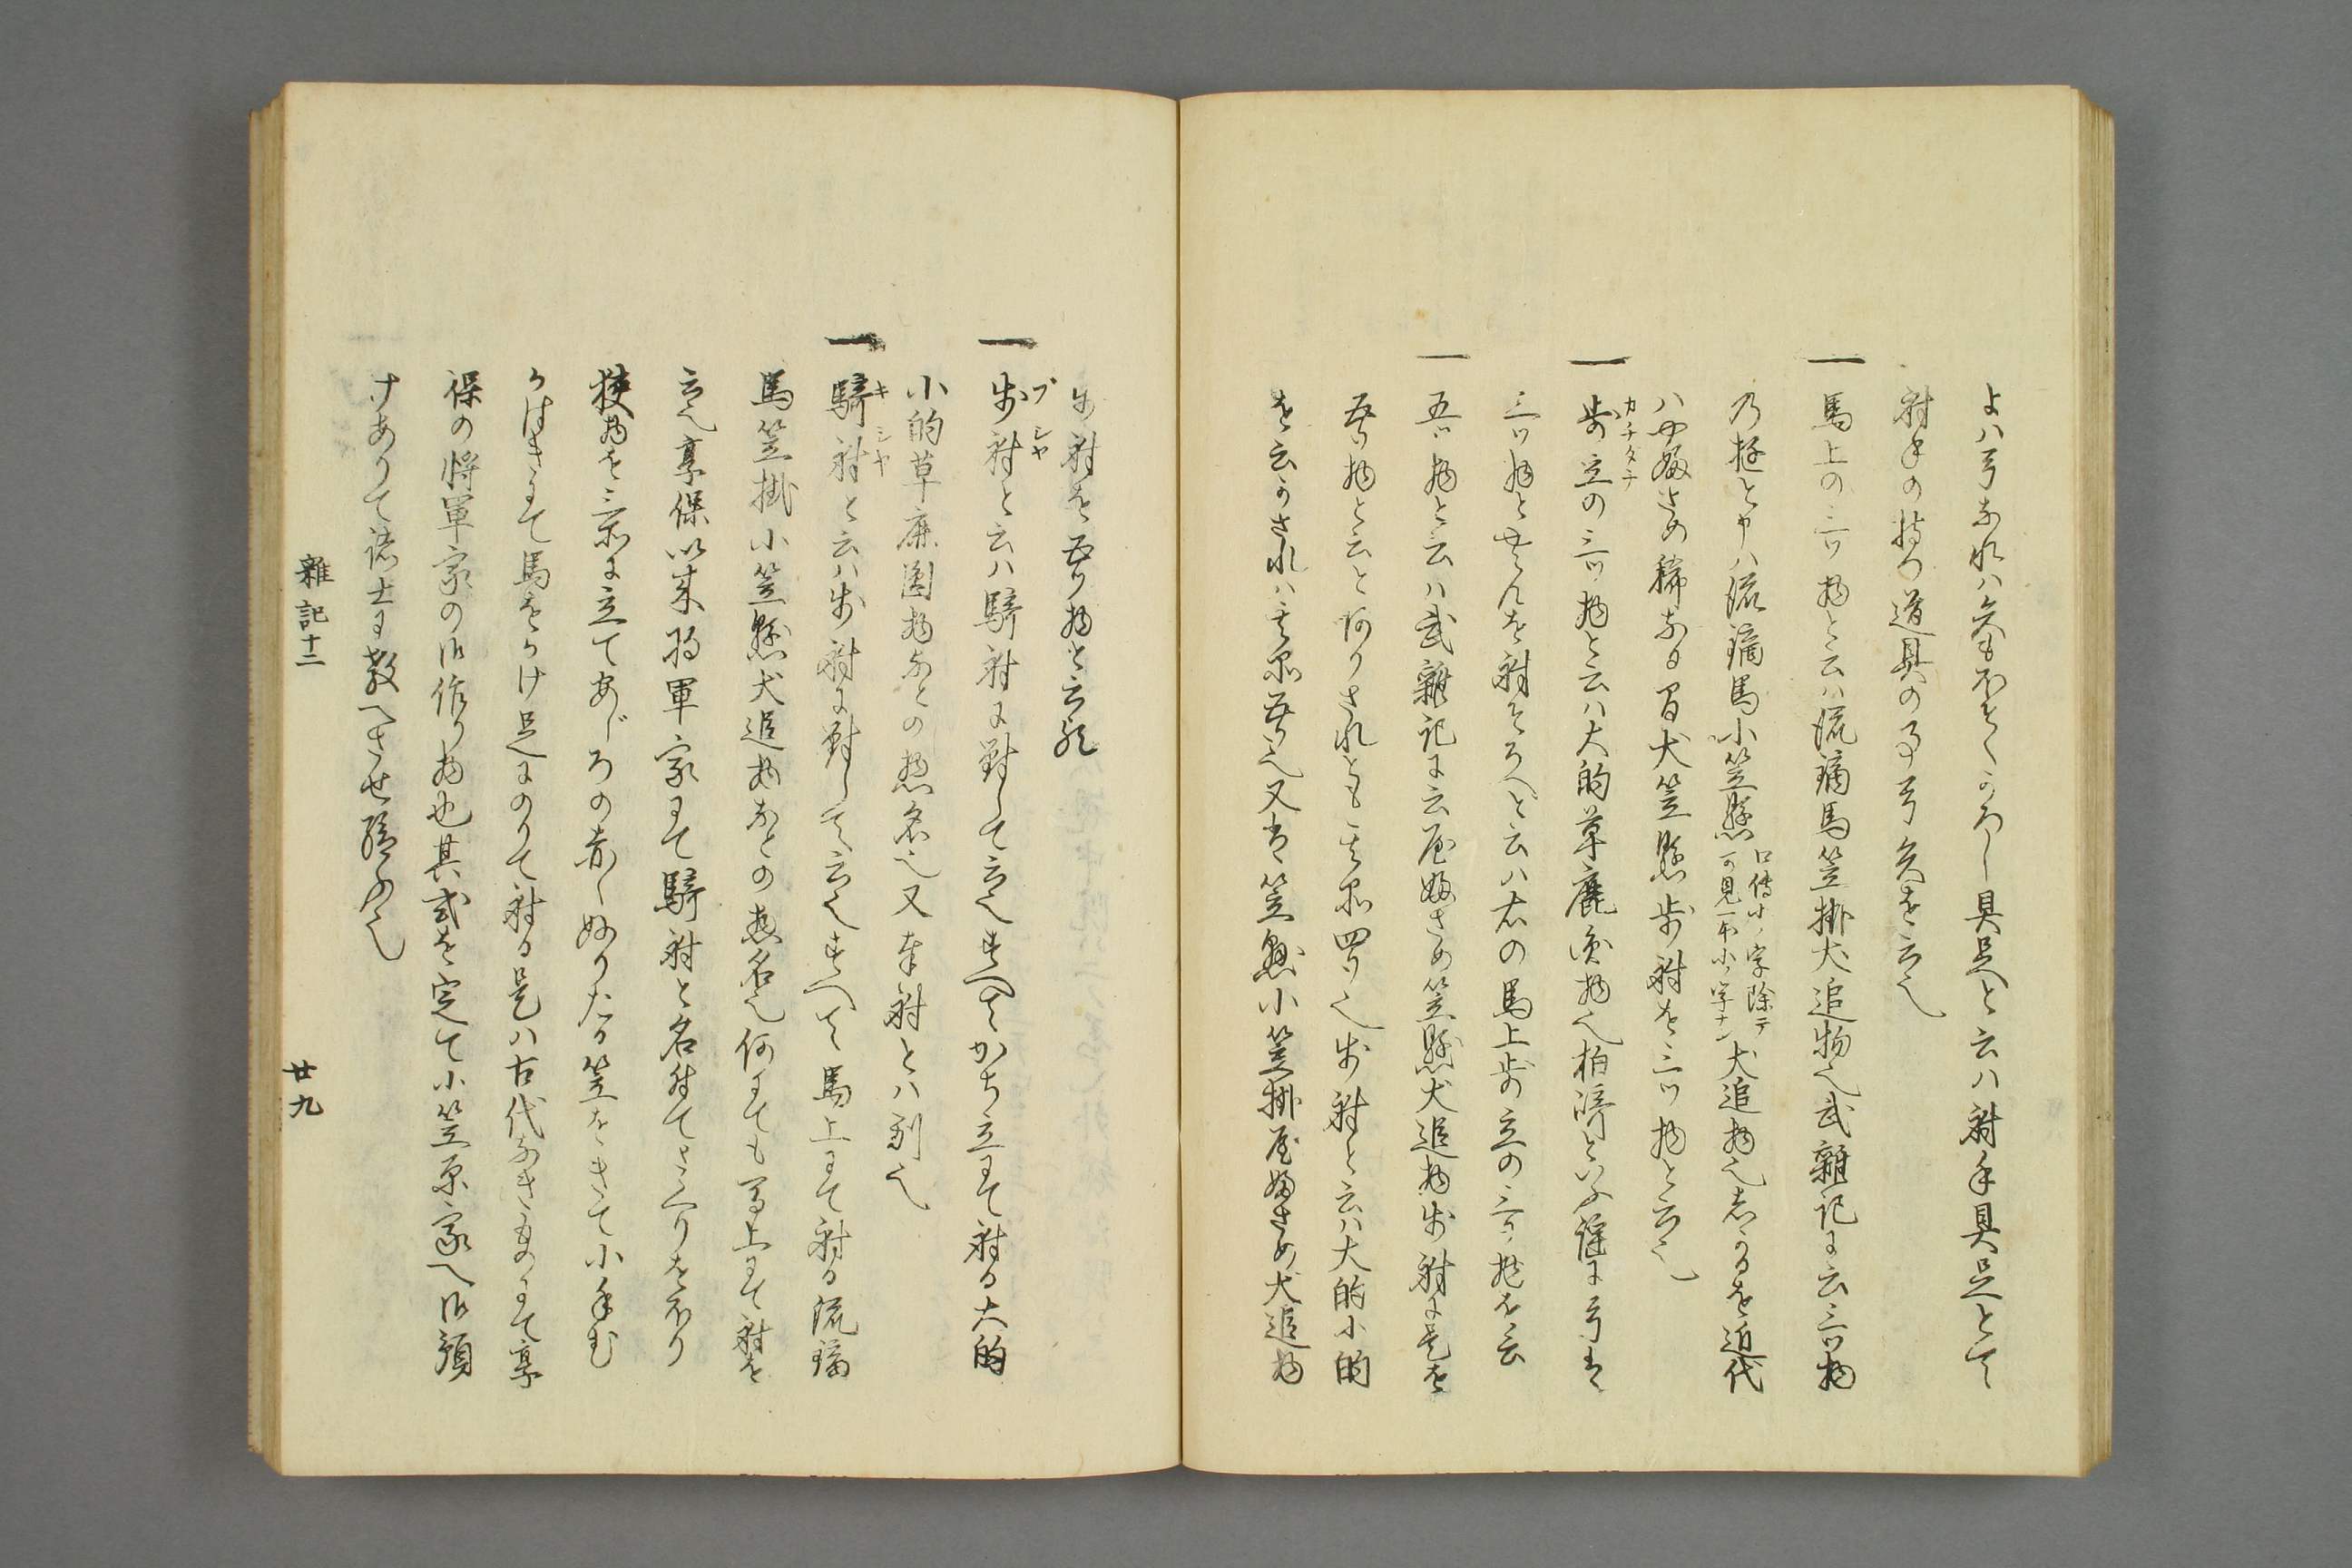 よハ弓なれハ矢もおなしかるへし具足と云ハ射手具足とて
射手の持つ道具の事弓矢を云也
一馬上の三ツ物と云ハ流鏑馬笠掛犬追物也武雑記に云三ツ物
乃挺と申ハ流鏑馬小笠懸口傳小ノ字除テ可見一本小ノ字ナシ犬追物也志かるを近代
ハやふさめ稀なる間犬笠懸歩射を三ツ物と云也
一歩立カチダチの三ツ物と云ハ大的草鹿円物也
三ツ物と云ハ右の馬上歩立の三ツ物を云
一五ツ物と云ハ武雑記に云屋ふさめ笠懸犬追物歩射に是を
五ツ物と云と有りされとも四ツ也歩射と云ハ大的小的
を云かされハ五ツ也又ハ笠懸小笠掛屋ふさめ犬追物
歩射を五ツ物と云歟
一歩射ブシヤと云ハ騎射に對して云也すへてかち立にて射る大的
小的草鹿圓物なとの惣名也又奉射とハ別也
一騎射キシヤと云ハ歩射に對して云也すへて馬上にて射る流鏑
馬笠掛小笠懸犬追物なとの惣名也何にても馬上にて射を
云也享保以来将軍家にて騎射と名付て
挟物を三所に立てあじろの赤くぬりたる笠をきて小手む
かはきにて馬をかけ足にのりて射る是ハ古代なきものにて享
保の将軍家の御作り物也其式を定て小笠原家へ御預
けありて諸士に教へさせ給ふ也
雜記十二
廿九